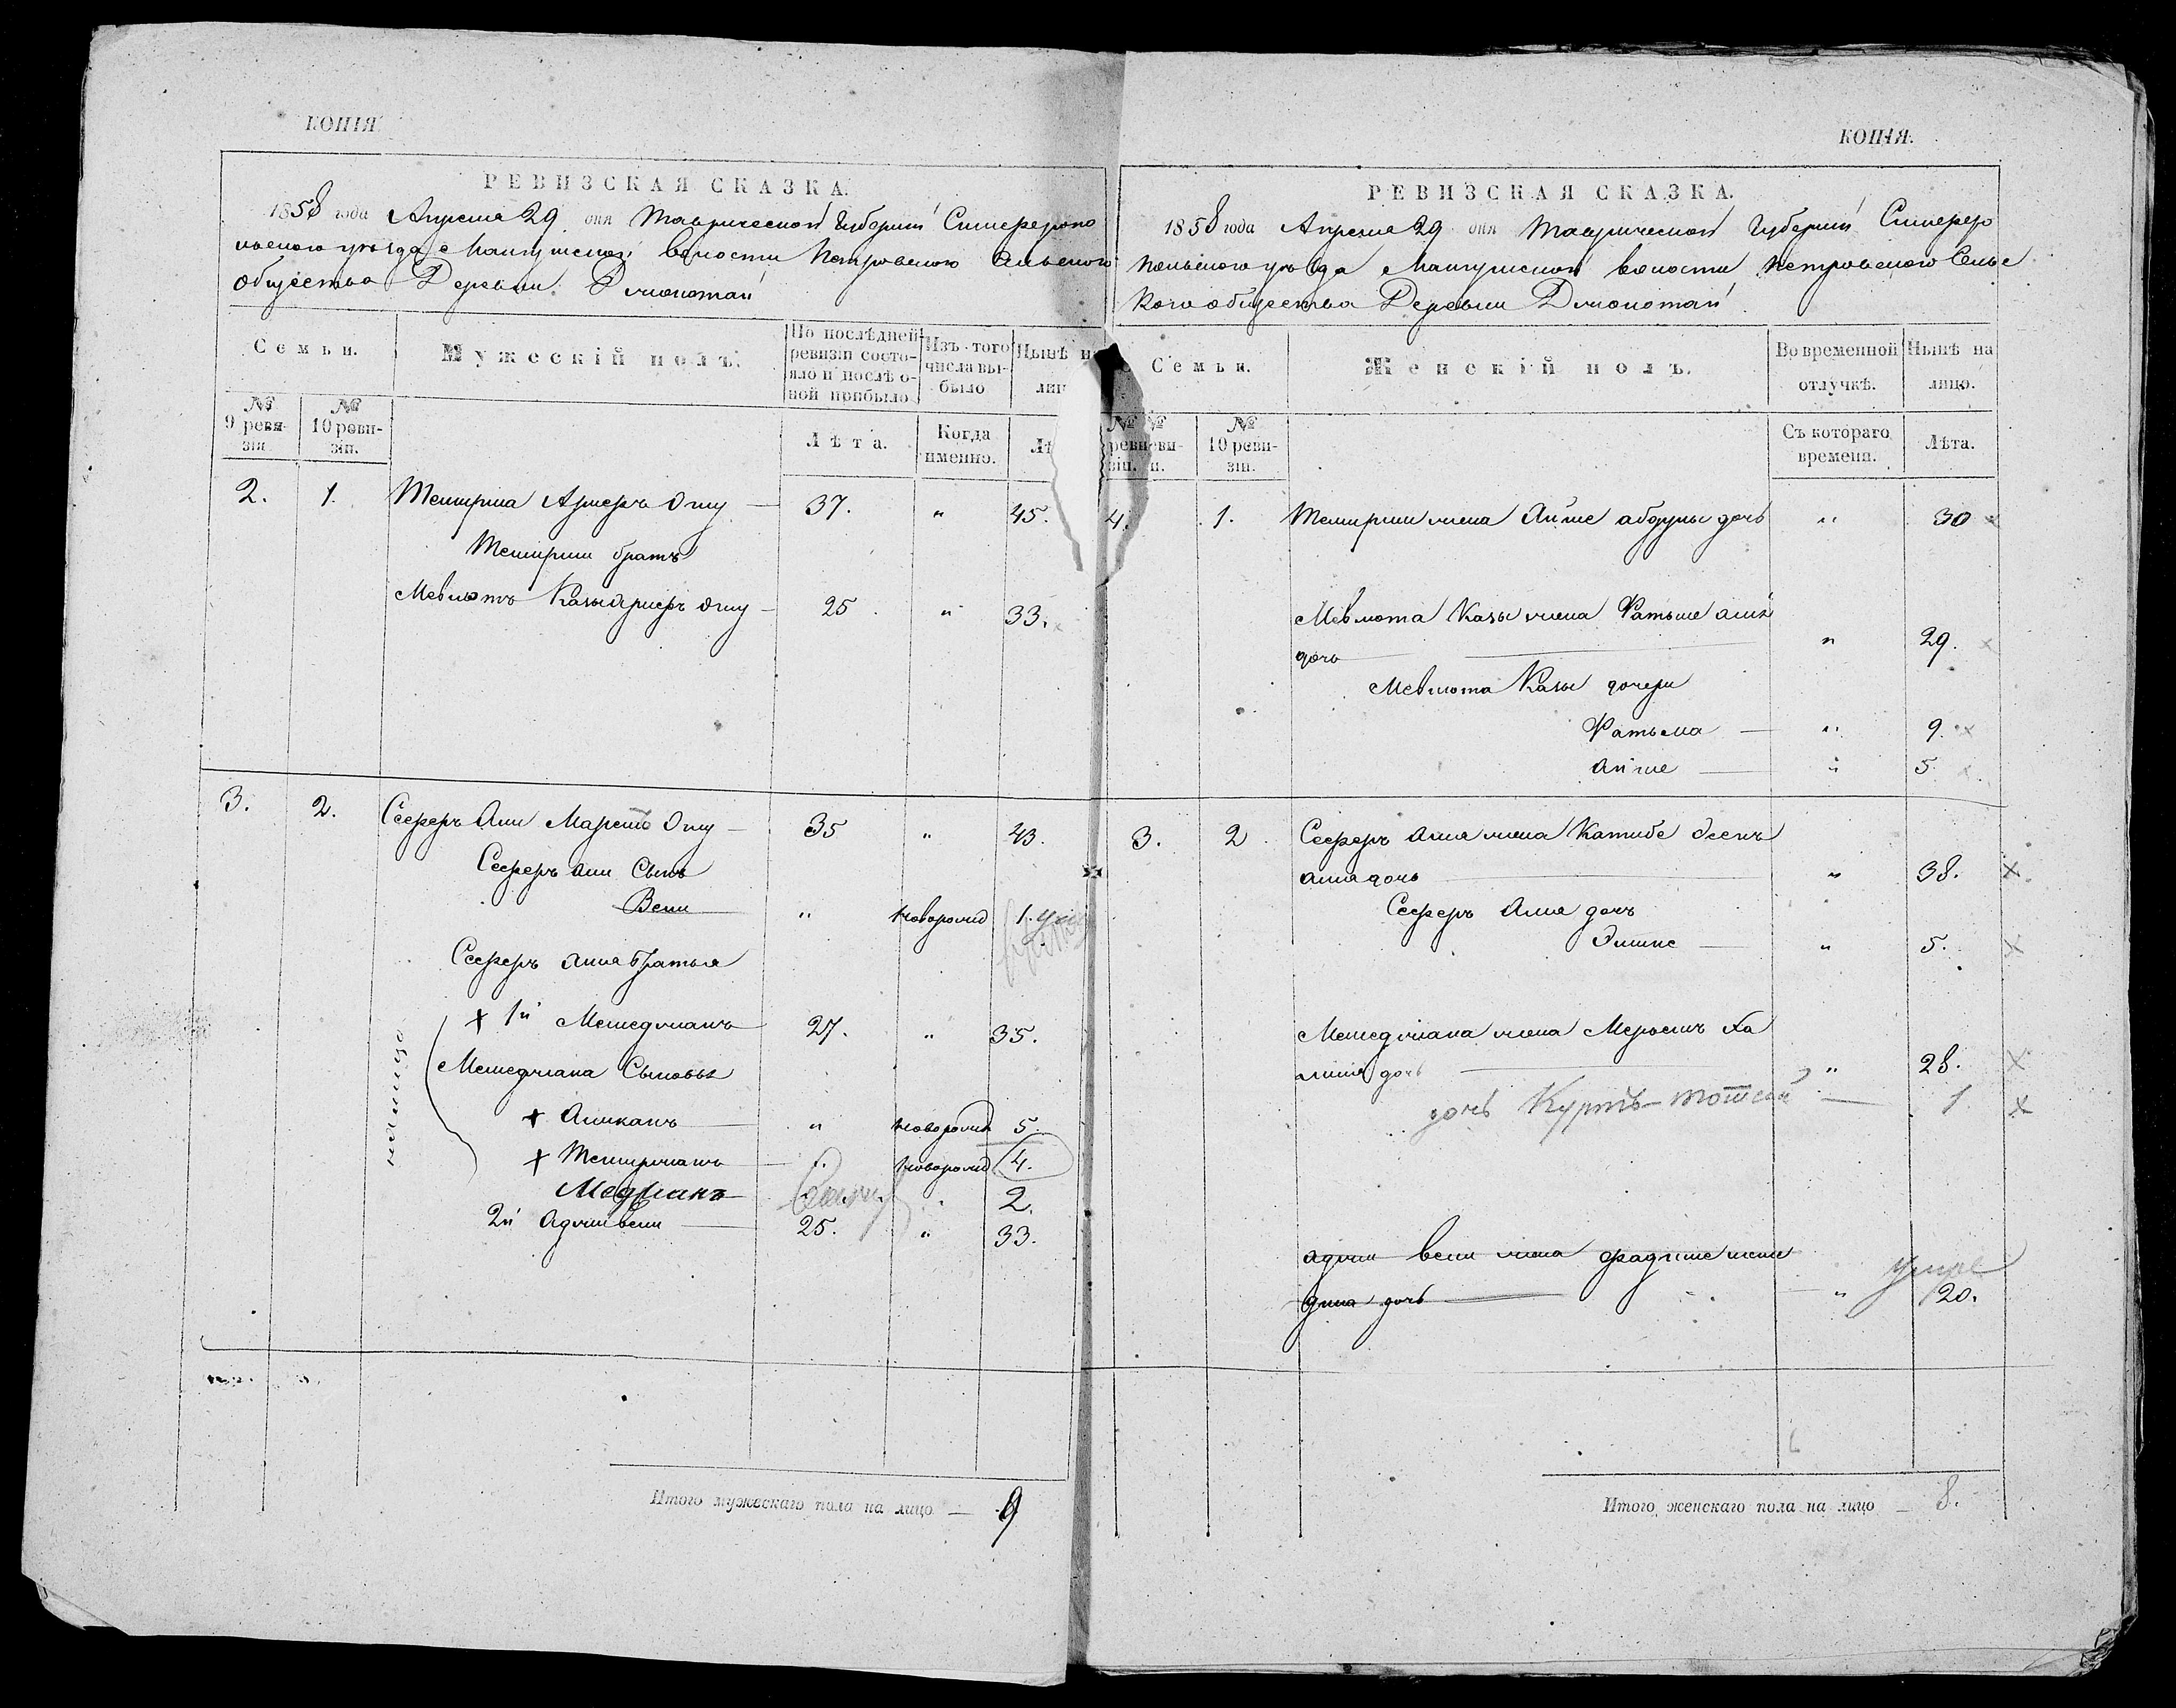 КОПІЯ.
РЕВИЗСКАЯ СКАЗКА.
1858 года Апреля 29 дня Таврической Губерніи Симферопо
льского уѣзда Мангушской волости Петровского Сельского
общества Деревни Джолотай
Семьи.
Мужескій полъ.
По послѣдней ревизіи состояло и послѣ оной прибыло
Изъ того числа выбыло
Нынѣ на лицо
№ 9 ревизіи
№ 10 ревизіи.
Лѣта.
Когда именно.
Лѣ
2. 1. Темирша Аджеръ Оглу — 37. " 45.
Темирши братъ
Мевлютъ Казы Аджеръ оглу — 25 " 33.
3. 2. Сеферъ Али Оглу — 35 " 43.
Сеферъ али Сынъ
Вели " новорожд 1.
Сеферъ Алия Братья
х 1й Мемеджанъ 27. " 35.
Мемеджана Сыновья
х Аликанъ — " новорожд 5.
х Темирчанъ — " новорожд 4.
2.
2й Аджи вели — 25. " 33.
Итого мужескаго пола на лицо — 9
КОПІЯ.
РЕВИЗСКАЯ СКАЗКА.
1858 года Апреля 29 дня Таврической Губерніи Симферо
польского уѣзда Мангушской волости Петровского Сельс
кого общества Деревни Джолотай
Семьи.
Женскій полъ.
Во временной отлучкѣ.
Нынѣ на лицо.
№ 10 ревизіи.
Съ котораго времени.
Лѣта.
4. 1. Темирши жена Айше дочь " 30 х
Мевлюта Казы жена Фатьме али
дочь — " 29. х
Мевлюта Казы дочери
Фатьма — " 9. х
Айше — " 5. х
3. 2. Сеферъ Алия жена Катибе Эсенъ
алия дочь — " 38. х
Сеферъ Алия дочь
— " 5. х
Мемеджана жена Мерьемъ Ха
лиля дочь — " 28. х
дочь Куртъ — 1 х
Аджи вели жена
дочь — " 20.
умре
Итого женскаго пола на лицо — 8.